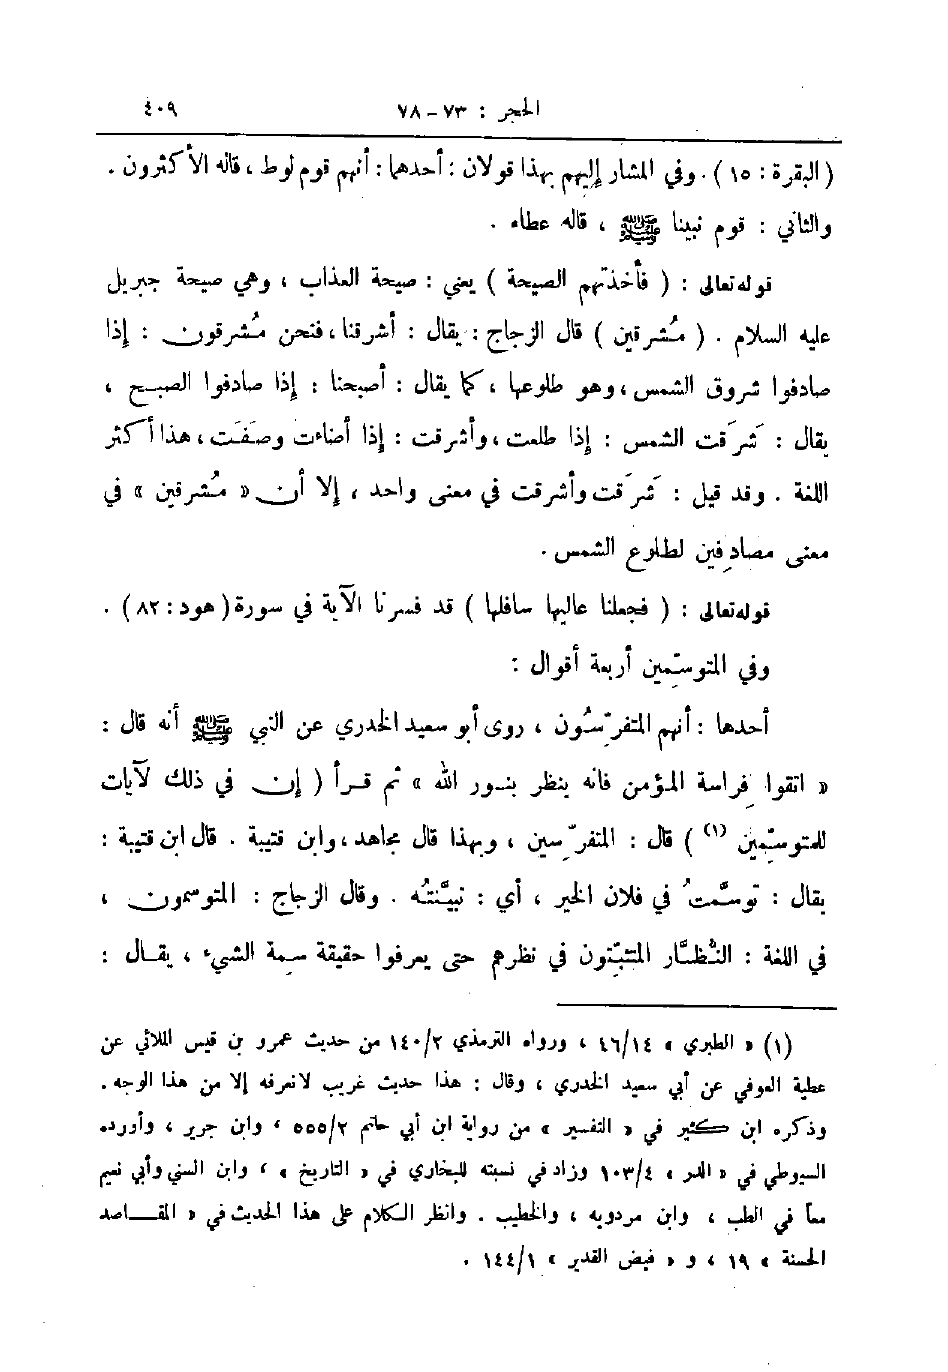 الحجر : ٧٣ - ٧٨ ٤٠٩
( البقرة : ١٥ ) . وفي المشار إليهم بهذا قولان : أحدهما : أنهم قوم لوط ، قاله الأكثرون .
والثاني : قوم نبينا ﷺ ، قاله عطاء .
قوله تعالى : ( فأخذتهم الصيحة ) يعني : صيحة العذاب ، وهي صيحة جبريل
عليه السلام . ( مُشرقين ) قال الزجاج : يقال : أشرقنا ، فنحن مُشرقون : إذا
صادفوا شروق الشمس ، وهو طلوعها ، كما يقال : أصبحنا : إذا صادفوا الصبح ،
يقال : شَرَقت الشمس : إذا طلعت ، وأشرقت : إذا أضاءت وصَفَت ، هذا أكثر
اللغة . وقد قيل : شَرَقت وأشرقت في معنى واحد ، إلا أن « مُشرقين » في
معنى مصادِفين لطلوع الشمس .
قوله تعالى : ( فجعلنا عاليها سافلها ) قد فسرنا الآية في سورة ( هود : ٨٢ ) .
وفي المتوسِّمين أربعة أقوال :
أحدها : أنهم المتفرِّسُون ، روى أبو سعيد الخدري عن النبي ﷺ أنه قال :
« اتقوا فِراسة المؤمن فانه ينظر بنور الله » ثم قرأ ( إن في ذلك لآيات
للمتوسِّمين (١) ) قال : المتفرِّسين ، وبهذا قال مجاهد ، وابن قتيبة . قال ابن قتيبة :
يقال : توسَّمتُ في فلان الخير ، أي : تبيَّنتُه . وقال الزجاج : المتوسمون ،
في اللغة : النُّظَّار المتثبِّتون في نظرهم حتى يعرفوا حقيقة سِمة الشيء ، يقال :
(١) « الطبري » ٤٦/١٤ ، ورواه الترمذي ١٤٠/٢ من حديث عمرو بن قيس الملائي عن
عطية العوفي عن أبي سعيد الخدري ، وقال : هذا حديث غريب لانعرفه إلا من هذا الوجه .
وذكره ابن كثير في « التفسير » من رواية ابن أبي حاتم ٥٥٥/٢ ، وابن جرير ، وأورده
السيوطي في « الدر » ١٠٣/٤ وزاد في نسبته للبخاري في « التاريخ » ، وابن السني وأبي نعيم
معاً في الطب ، وابن مردويه ، والخطيب . وانظر الكلام على هذا الحديث في « المقاصد
الحسنة » ١٩ ، و « فيض القدير » ١٤٤/١ .